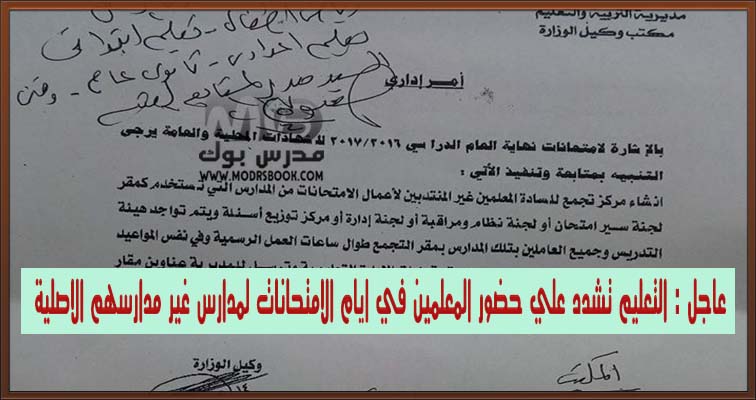 مديرية التربية والتعليم
مكتب وكيل الوزارة
تعليم ابتدائي
تعليم اعدادي - ثانوي عام - وفني
السيد مدير
أمر إداري
مدرس بوك
WWW.MODRSBOOK.COM
بالإشارة لامتحانات نهاية العام الدراسي ٢٠١٧/٢٠١٦ للشهادات المحلية والعامة يرجى
التنبيه بمتابعة وتنفيذ الأتي :
انشاء مركز تجمع للسادة المعلمين غير المنتدبين لأعمال الامتحانات من المدارس التي تستخدم كمقر
لجنة سير امتحان أو لجنة نظام ومراقبة أو لجنة إدارة أو مركز توزيع أسئلة ويتم تواجد هيئة
التدريس وجميع العاملين بتلك المدارس بمقر التجمع طوال ساعات العمل الرسمية وفي نفس المواعيد
للمديرية عناوين مقار
عاجل : التعليم تشدد علي حضور المعلمين في ايام الامتحانات لمدارس غير مدارسهم الاصلية
وكيل الوزارة